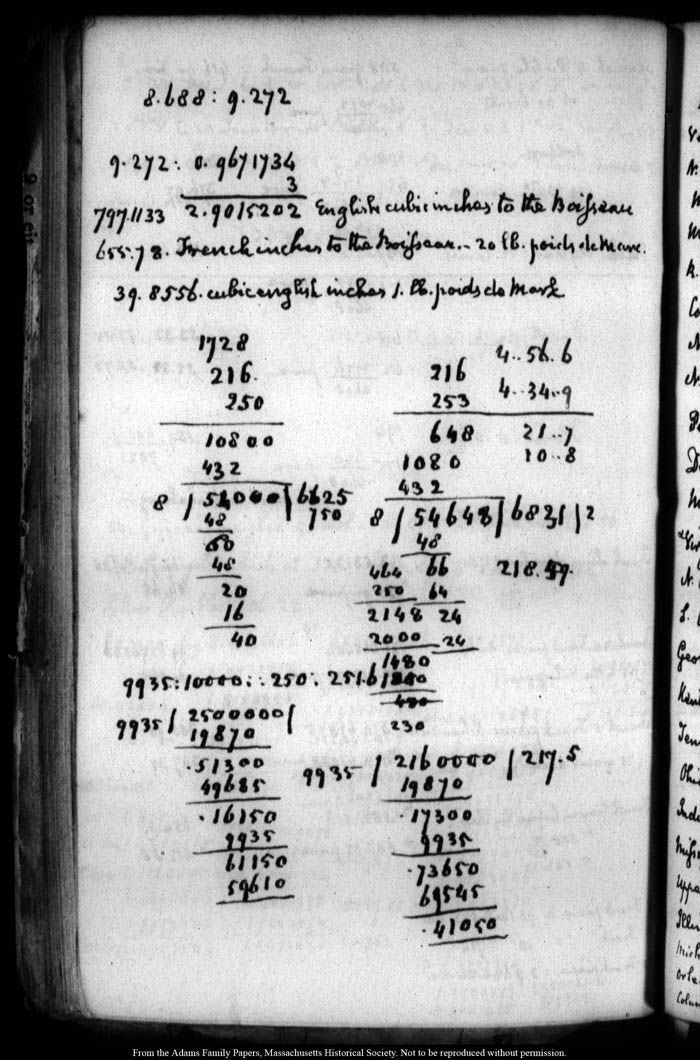 8.688 : 9.272
9.272 : 0.9671734
3
797.1133 2.9015202 English cubic inches to the Boisseau
655.78. French inches to the Boisseau. - 20 lb. poids de Marc.
39.8556. cubic english inches 1. lb. poids de Mark
1728
216.
250
10800
432
8 / 54000 / 6625
750
48
60
48
20
16
40
4..56.6
216
4..34..9
253
648 21..7
1080 10..8
432
8 / 54648 / 6831 / 2
48
464 66 218.
250 64
2148 24
2000 24
1480
230
9935 : 10000 :: 250 . 251.6
9935 / 2500000 /
19870
.51300
49685
.16150
9935
61150
59610
9935 / 2160000 / 217.5
19870
17300
9935
.73650
69545
.41050
From the Adams Family Papers, Massachusetts Historical Society. Not to be reproduced without permission.